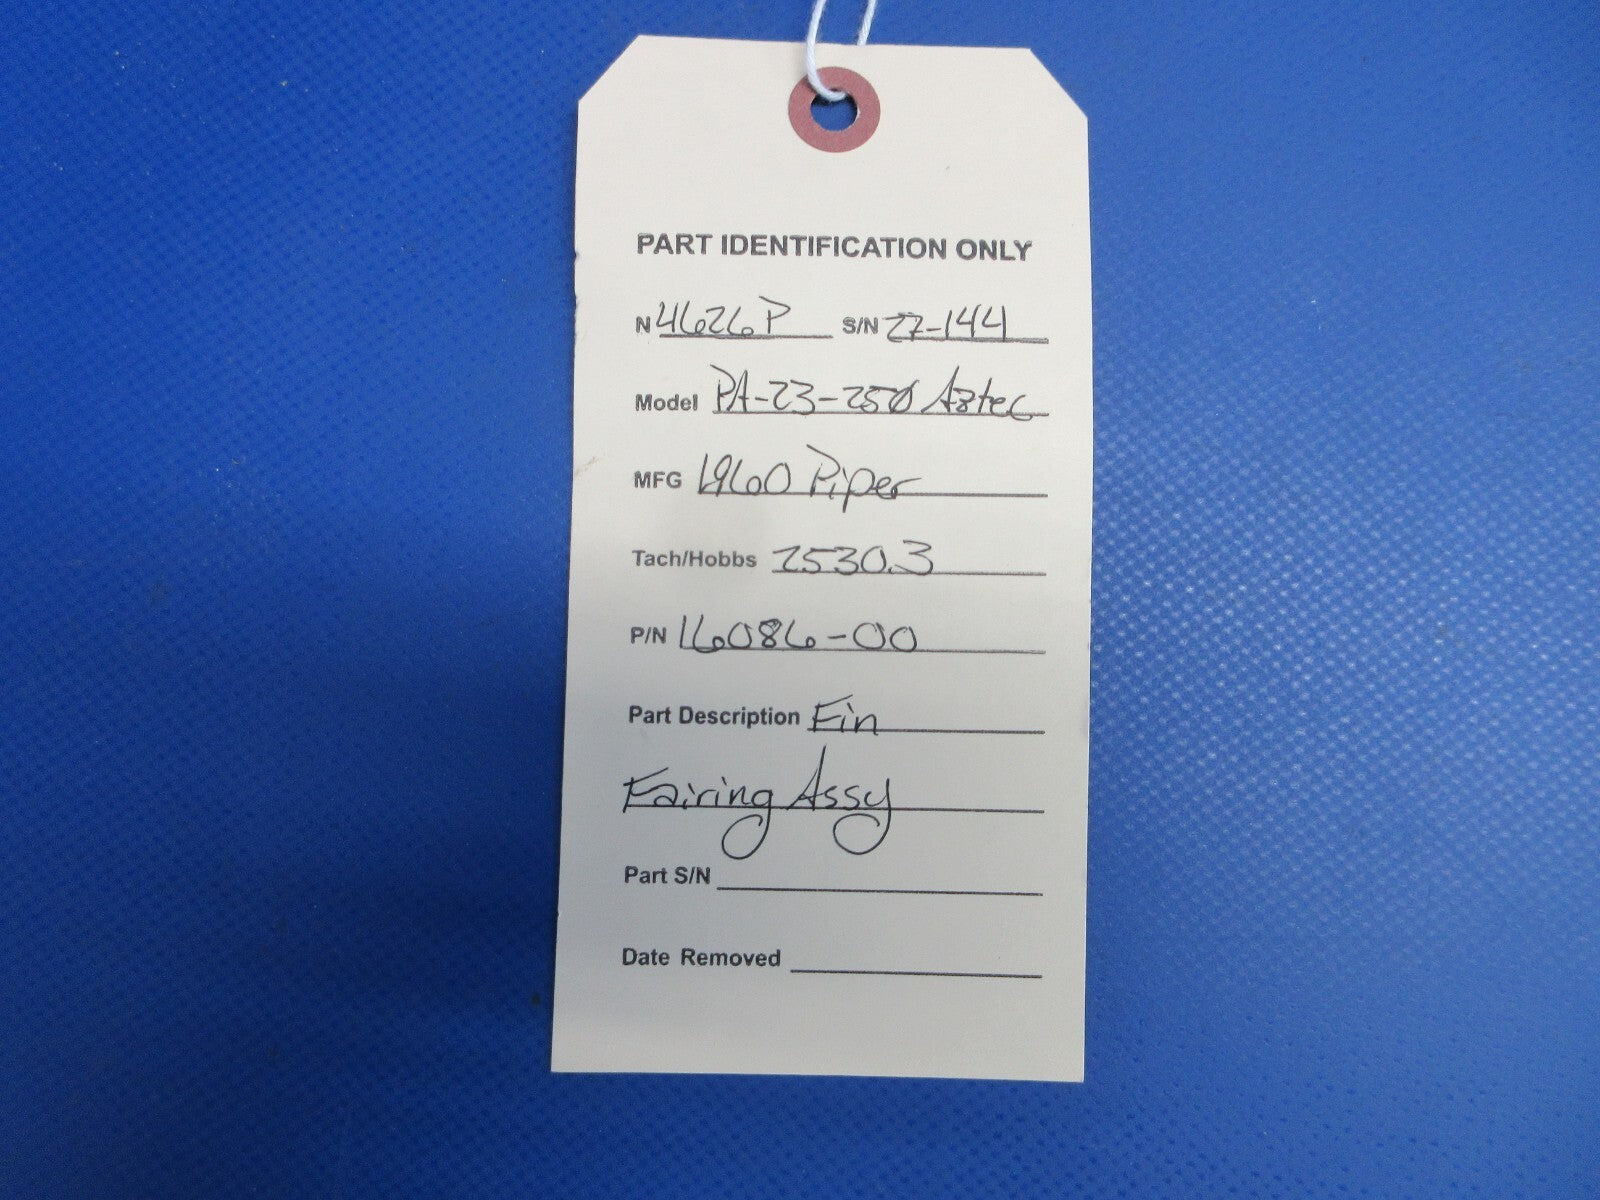 PART IDENTIFICATION ONLY
N 4626P S/N 27-144
Model PA-23-250 Aztec
MFG 1960 Piper
Tach/Hobbs 2530.3
P/N 16086-00
Part Description Fin
Fairing Assy
Part S/N
Date Removed